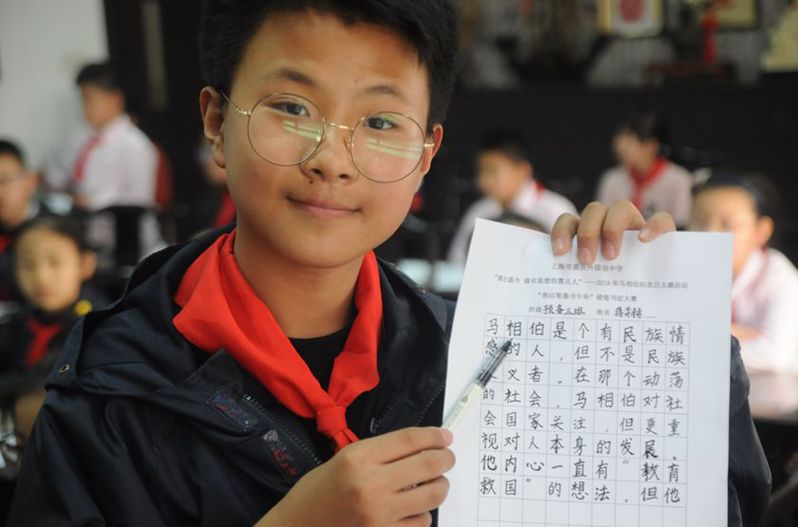 上海市震旦外国语中学
追今 做有思想的震旦人”——2018年马相伯纪念日主题活动
“我以笔墨书中华”硬笔书法大赛
班级 预备三班 姓名
马相伯是个有民族情
感的人，但不是民族
主义者。在那个动荡
的社会，马相伯对社
会国家关注，但更重
视对人本身的发展。
他内心一直有“教育
救国”的想法，但他